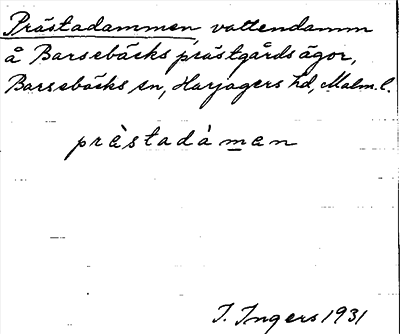 Prästadammen, vattendamm
å Barsebäcks prästgårds ägor,
Barsebäcks sn, Harjagers hd, Malm. l.
prästadàmen
I. Ingers 1931